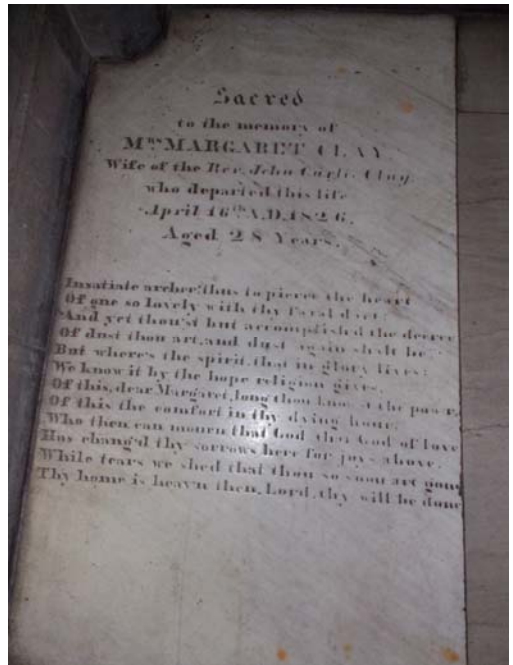 Sacred
to the memory of
Mrs MARGARET CLAY
Wife of the Rev. John Curtis Clay
who departed this life
April 16th A.D. 1826.
Aged 28 Years.
Insatiate archer! thus to pierce the heart
Of one so lovely with thy fatal dart;
And yet thou'st but accomplish'd the decree
Of dust thou art, and dust again shalt be
But where's the spirit, that in glory lives;
We know it by the hope religion gives.
Of this, dear Margaret, long thou knew'st the pow'r,
Of this the comfort in thy dying hour.
Who then can mourn that God, that God of love
Has chang'd thy sorrows here for joys above.
While tears we shed that thou so soon art gone
Thy home is heav'n then, Lord, thy will be done